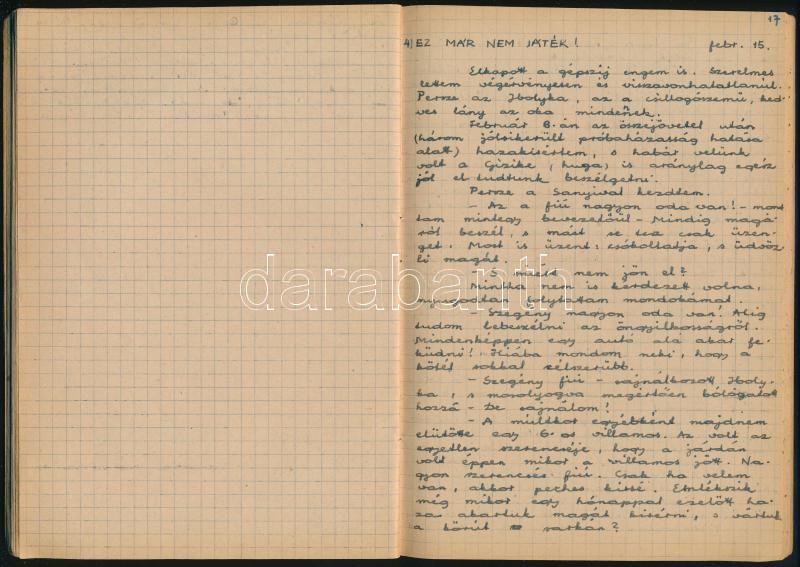 17
4) EZ MÁR NEM JÁTÉK! febr. 15.
Elkapott a gépszíj engem is. Szerelmes
lettem végérvényesen és visszavonhatatlanul.
Persze az Ibolyka, az a csillogószemü, ked-
ves lány az oka mindennek.
Február 8.-án az összejövetel után
(három jólsikerült próbaházasság hatása
alatt) hazakisértem, s habár velünk
volt a Gizike, (huga) is aránylag egész
jól el tudtunk beszélgetni.
Persze a Sanyival kezdtem.
- Az a fiú nagyon oda van! - mond
tam mintegy bevezetőül - Mindig magá-
ról beszél, s mást se tesz csak üzen-
get. Most is üzent: csókoltatja, s üdvöz-
li magát.
- S miért nem jön el?
Mintha nem is kérdezett volna,
nyugodtan folytattam mondókámat.
Szegény nagyon oda van! Alig
tudom lebeszélni az öngyilkosságról.
Mindenképpen egy autó alá akar fe-
küdni! Hiába mondom neki, hogy a
kötél sokkal célszerübb.
- Szegény fiú - sajnálkozott Iboly-
ka, s mosolyogva megértően bólogatott
hozzá - De sajnálom!
- A multkor egyébként majdnem
elütötte egy 6-os villamos. Az volt az
egyetlen szerencséje, hogy a járdán
volt éppen mikor a villamos jött. Na-
gyon szerencsés fiú. Csak ha velem
van, akkor peches kissé. Emlékszik
még mikor egy hónappal ezelőtt ha-
za akartuk magát kisérni, s vártuk
a körút sarkán?
darabanth